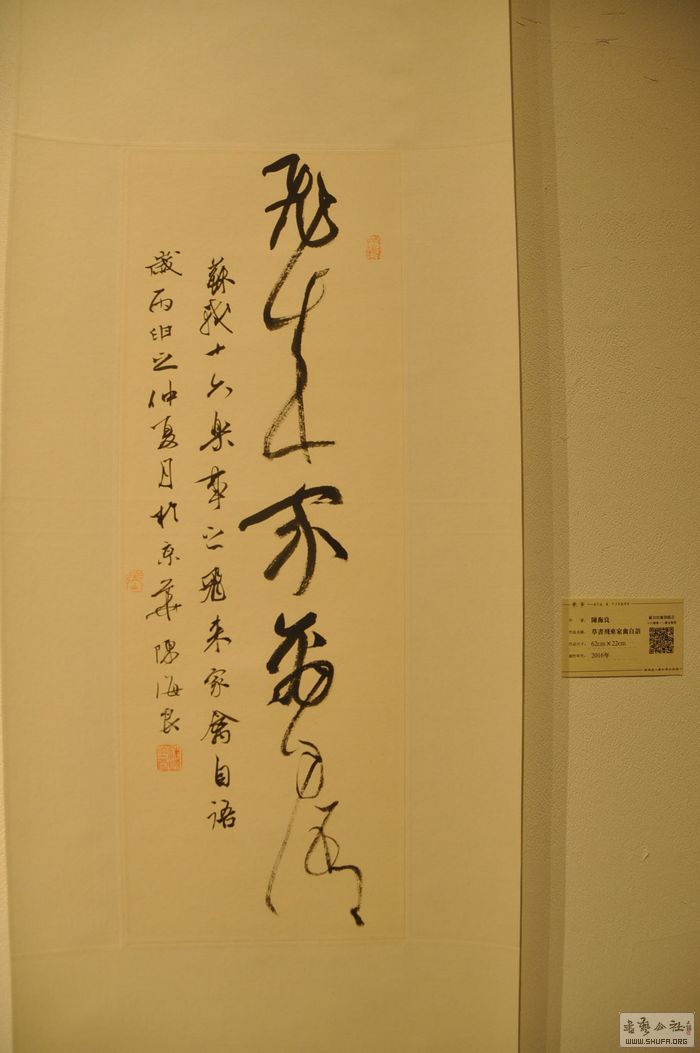 飛来家禽自語
蘇軾十六樂事之飛来家禽自語
歲丙申之仲夏月於京華陳海良
陳海良
草書飛來家禽自語
62cm×22cm
2016年
WWW.SHUFA.ORG